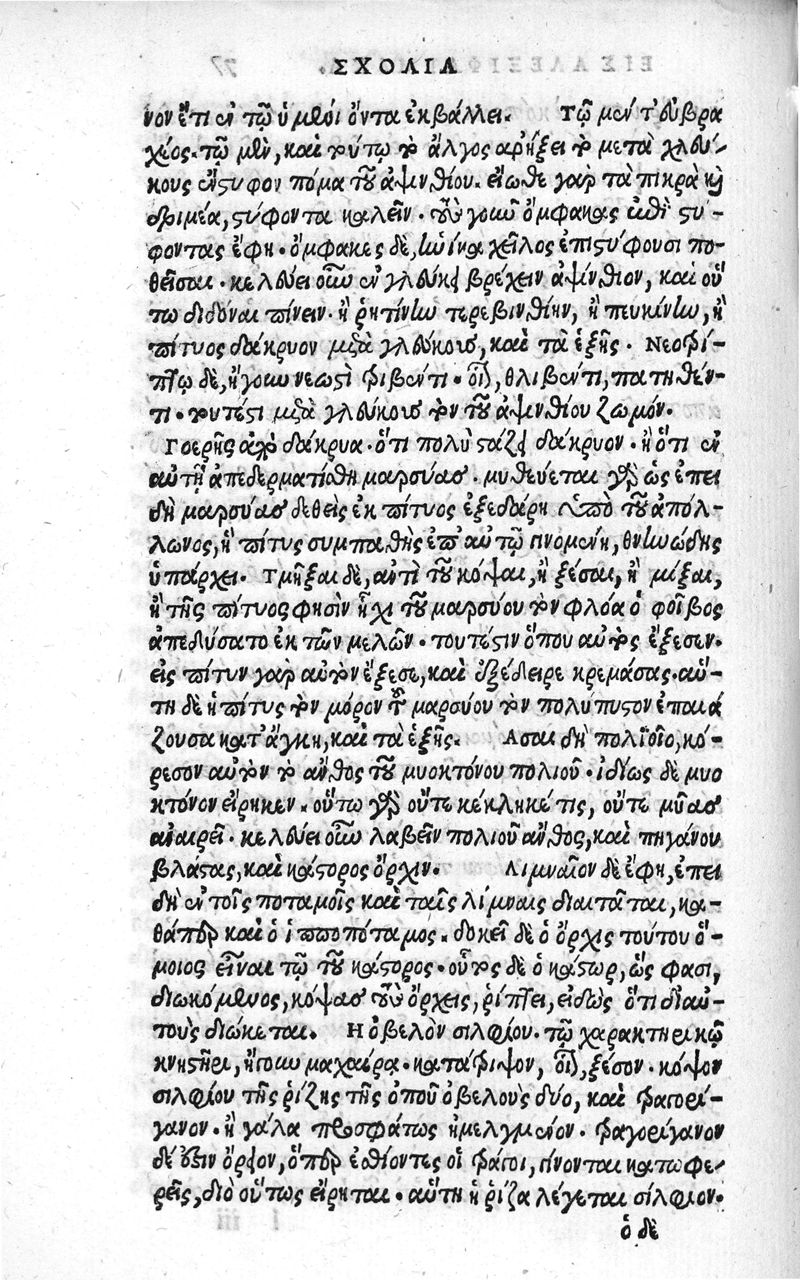 ΣΧΟΛΙΑ
νον ἔτι ἐν τῷ ὑμένι ὄντα ἐκβάλλει. Τῷ μέν τ' εὐβρα
χέος. τῷ μὲν, καὶ τούτῳ τὸ ἄλγος ἀρήξει τὸ μετὰ γλυκύ-
κους ἔνστυφον πόμα τοῦ ἀψινθίου. εἴωθε γὰρ τὰ πικρὰ καὶ
δριμέα, στύφοντα καλεῖν. τοὺς γοῦν ὄμφακας ἐπὶ στύ-
φοντας ἔφη. ὄμφακες δὲ, ἣν ἵνα χεῖλος ἐπιστύφουσι πο-
θεῖσαι. κελεύει οὖν ἐν γλυκεῖ βρέχειν ἀψίνθιον, καὶ οὕ
τω διδόναι πίνειν. ἢ ῥητίνην τερεβινθίνην, ἢ πευκίνην, ἢ
πίτυος δάκρυον μετὰ γλυκέος, καὶ τὰ ἑξῆς. Νεοτρί-
πτῳ δὲ, ἤγουν νεωστὶ τριβέντι. οἷον, θλιβέντι, πατηθέν-
τι. τουτέστι μετὰ γλυκέος τὸν τοῦ ἀψινθίου ζωμόν.
Γοερῆς ἀπὸ δάκρυα. ὅτι πολὺ στάζει δάκρυον. ἢ ὅτι ἐν
αὐτῇ ἀπεδερματίσθη μαρσύας. μυθεύεται γὰρ ὡς ἐπει
δὴ μαρσύας δεθεὶς ἐκ πίτυος ἐξεδάρη ὑπὸ τοῦ ἀπόλ-
λωνος, ἡ πίτυς συμπαθὴς ἐπ' αὐτῷ γινομένη, θρηνώδης
ὑπάρχει. Τμῆξαι δὲ, ἀντὶ τοῦ κόψαι, ἢ ξέσαι, ἢ μίξαι,
ἢ τῆς πίτυος φησὶν ἧχι τοῦ μαρσύου τὸν φλόα ὁ φοῖβος
ἀπεδύσατο ἐκ τῶν μελῶν. τουτέστιν ὅπου αὐτὸς ἔξεσεν.
εἰς πίτυν γὰρ αὐτὸν ἔξεσε, καὶ ἐξέδειρε κρεμάσας. αὕ-
τη δὲ ἡ πίτυς τὸν μόρον τοῦ μαρσύου τὸν πολύπυστον ἐπαιά
ζουσα κατ' ἄγκη, καὶ τὰ ἑξῆς. Ασαι δὴ πολίοιο, κό-
ρεσον αὐτὸν τὸ ἄνθος τοῦ μυοκτόνου πολιοῦ. ἰδίως δὲ μυο
κτόνον εἴρηκεν. οὕτω γὰρ οὔτε κέκληκέ τις, οὔτε μῦας
ἀναιρεῖ. κελεύει οὖν λαβεῖν πολιοῦ ἄνθος, καὶ πηγάνου
βλάστας, καὶ κάστορος ὄρχιν. Λιμναῖον δὲ ἔφη, ἐπει
δὴ ἐν τοῖς ποταμοῖς καὶ ταῖς λίμναις διαιτᾶται, κα-
θάπερ καὶ ὁ ἱπποπόταμος. δοκεῖ δὲ ὁ ὄρχις τούτου ὅ-
μοιος εἶναι τῷ τοῦ κάστορος. οὗτος δὲ ὁ κάστωρ, ὥς φασι,
διωκόμενος, κόψας τοὺς ὄρχεις, ῥίπτει, εἰδὼς ὅτι δι αὐ-
τοὺς διώκεται. Η ὀβελὸν σιλφίου. τῷ χαρακτηρικῷ
κνηστῆρι, ἤγουν μαχαίρᾳ. κατάτριψον, οἷον, ξέσον. κόψον
σιλφίου τῆς ῥίζης τῆς ὀποῦ ὀβελοὺς δύο, καὶ τραγορί-
γανον. ἢ γάλα προσφάτως ἠμελγμένον. τραγορίγανον
δέ ἐστιν ὄρειον, ὅπερ ἐσθίοντες οἱ τράγοι, γίνονται κατωφε-
ρεῖς, διὸ οὕτως εἴρηται. αὕτη ἡ ῥίζα λέγεται σίλφιον.
ὁ δὲ